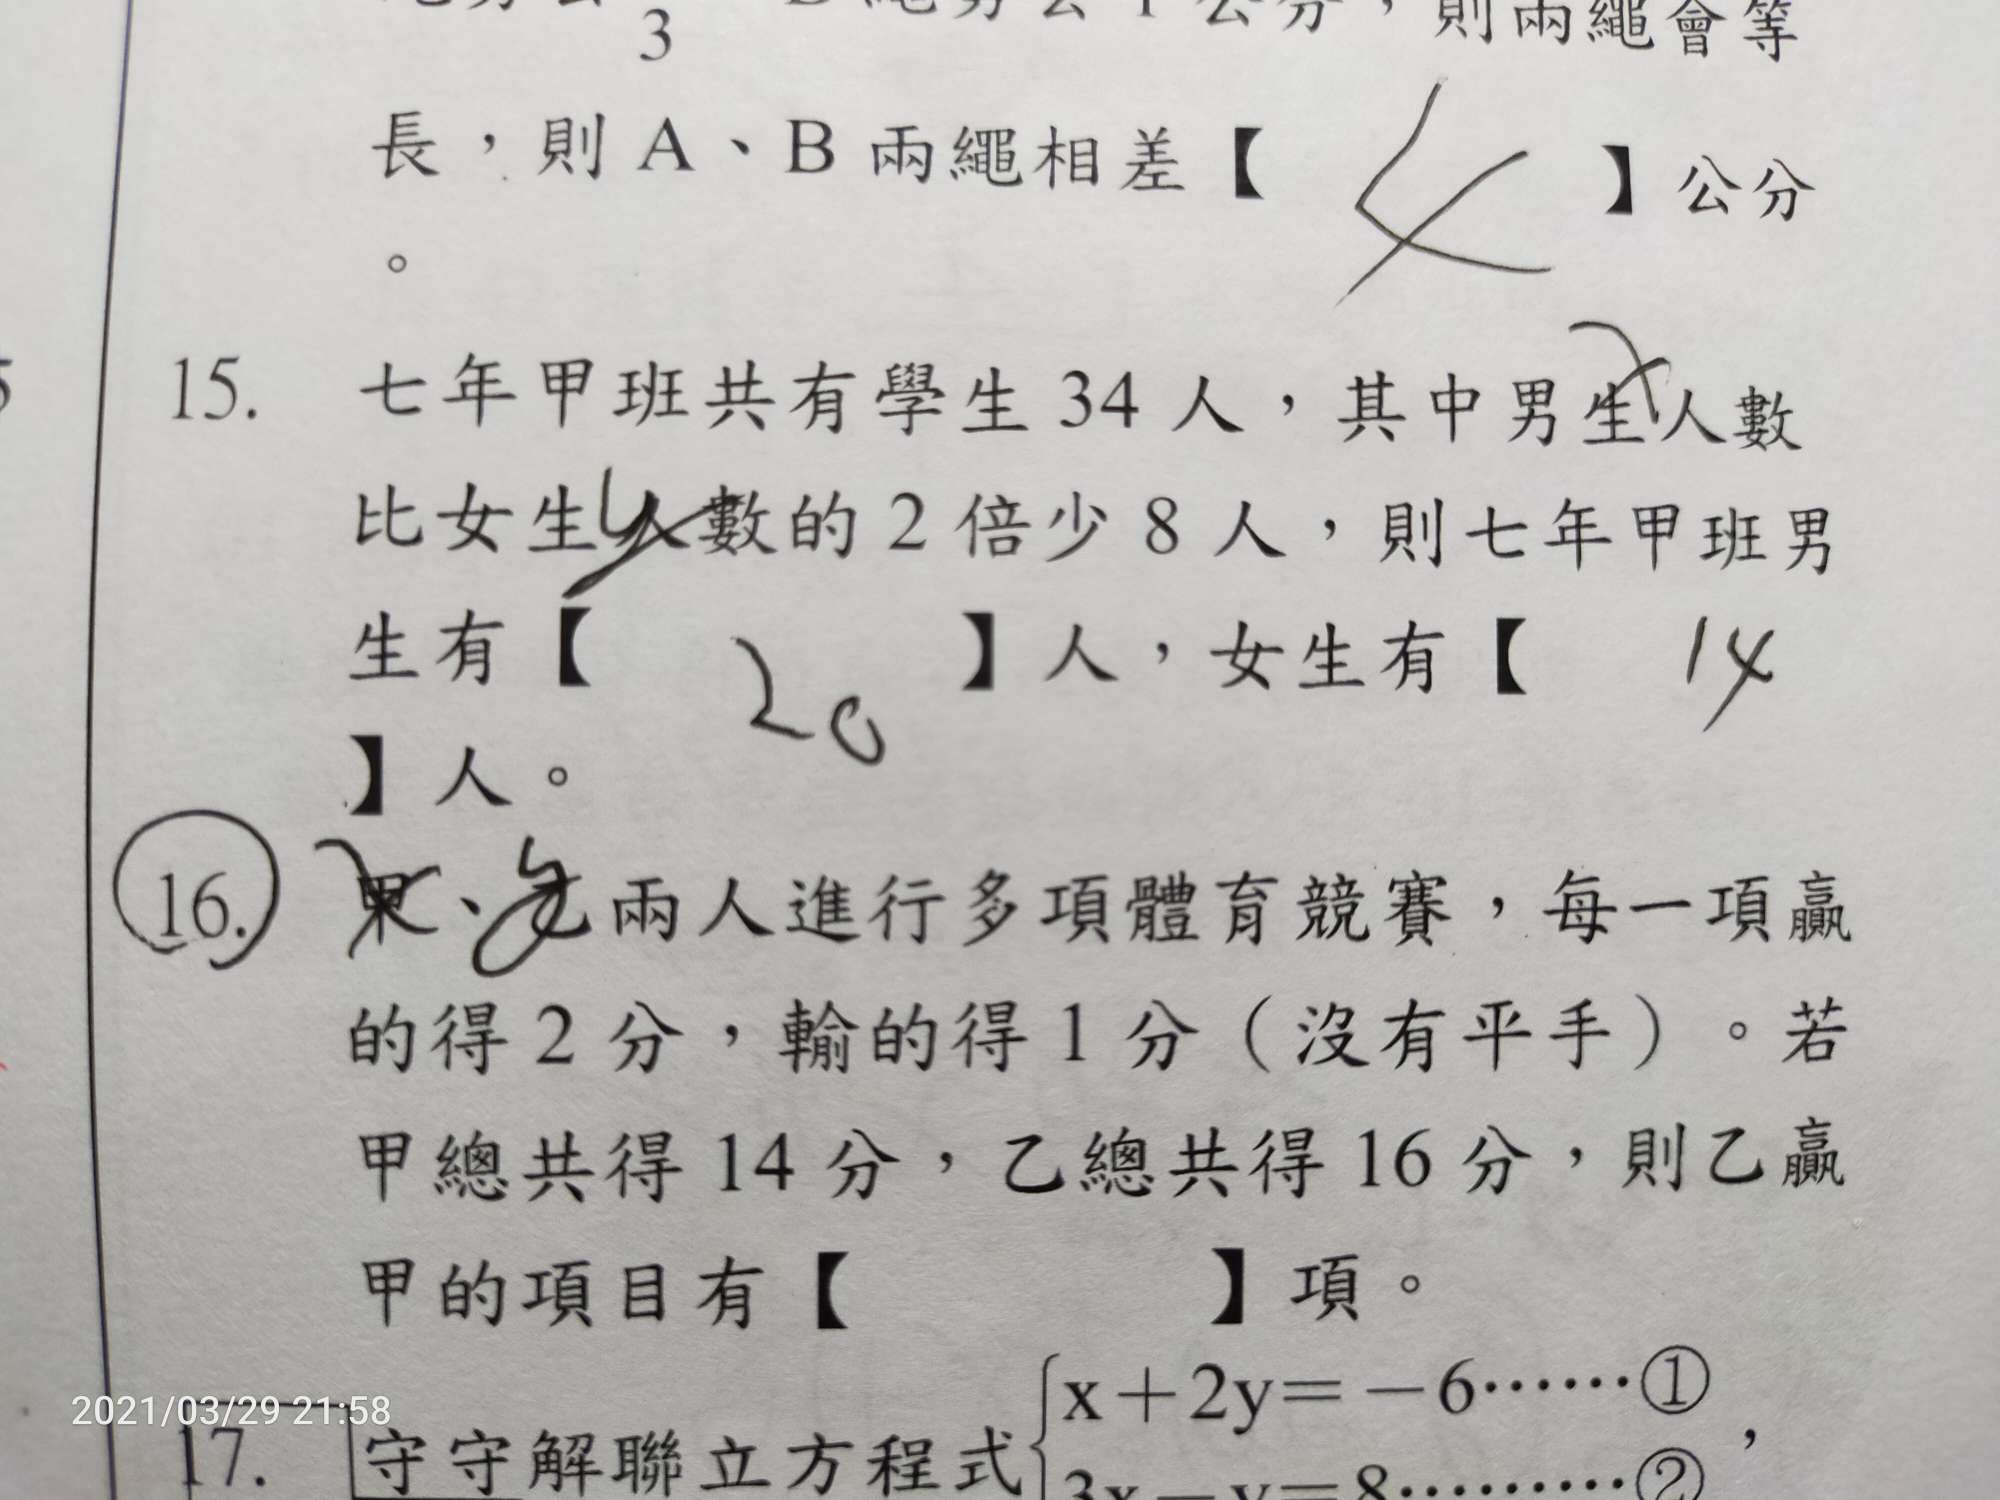 3
則兩繩會等
長，則 A、B 兩繩相差【 4 】公分
。
15. 七年甲班共有學生 34 人，其中男生人數
x
比女生人數的 2 倍少 8 人，則七年甲班男
y
生有【 20 】人，女生有【 14
】人。
16. 甲、乙兩人進行多項體育競賽，每一項贏
x y
的得 2 分，輸的得 1 分（沒有平手）。若
甲總共得 14 分，乙總共得 16 分，則乙贏
甲的項目有【 】項。
x＋2y＝－6……①
17. 守守解聯立方程式 ，
3x－y＝8………②
2021/03/29 21:58